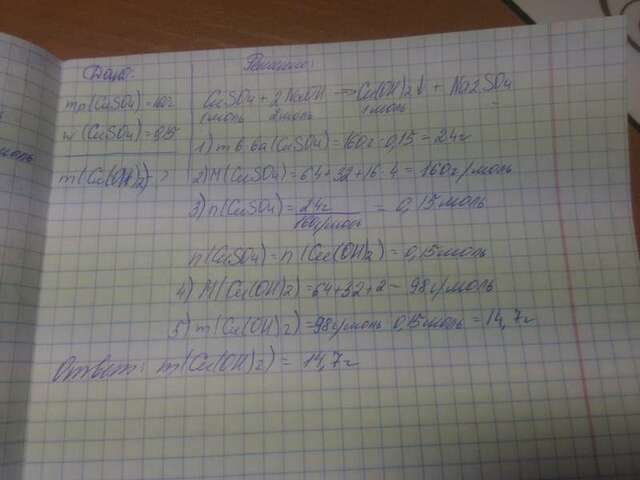 Дано:
Решение:
mр(CuSO4)=160г
w(CuSO4)=0,15
m(Cu(OH)2)-?
CuSO4 + 2NaOH → Cu(OH)2↓ + Na2SO4
1моль 2моль 1моль
1) m в-ва(CuSO4)=160г·0,15=24г
2) M(CuSO4)=64+32+16·4=160г/моль
3) n(CuSO4)=24г/160г/моль=0,15моль
n(CuSO4)=n(Cu(OH)2)=0,15моль
4) M(Cu(OH)2)=64+32+2=98г/моль
5) m(Cu(OH)2)=98г/моль·0,15моль=14,7г
Ответ: m(Cu(OH)2)=14,7г
моль